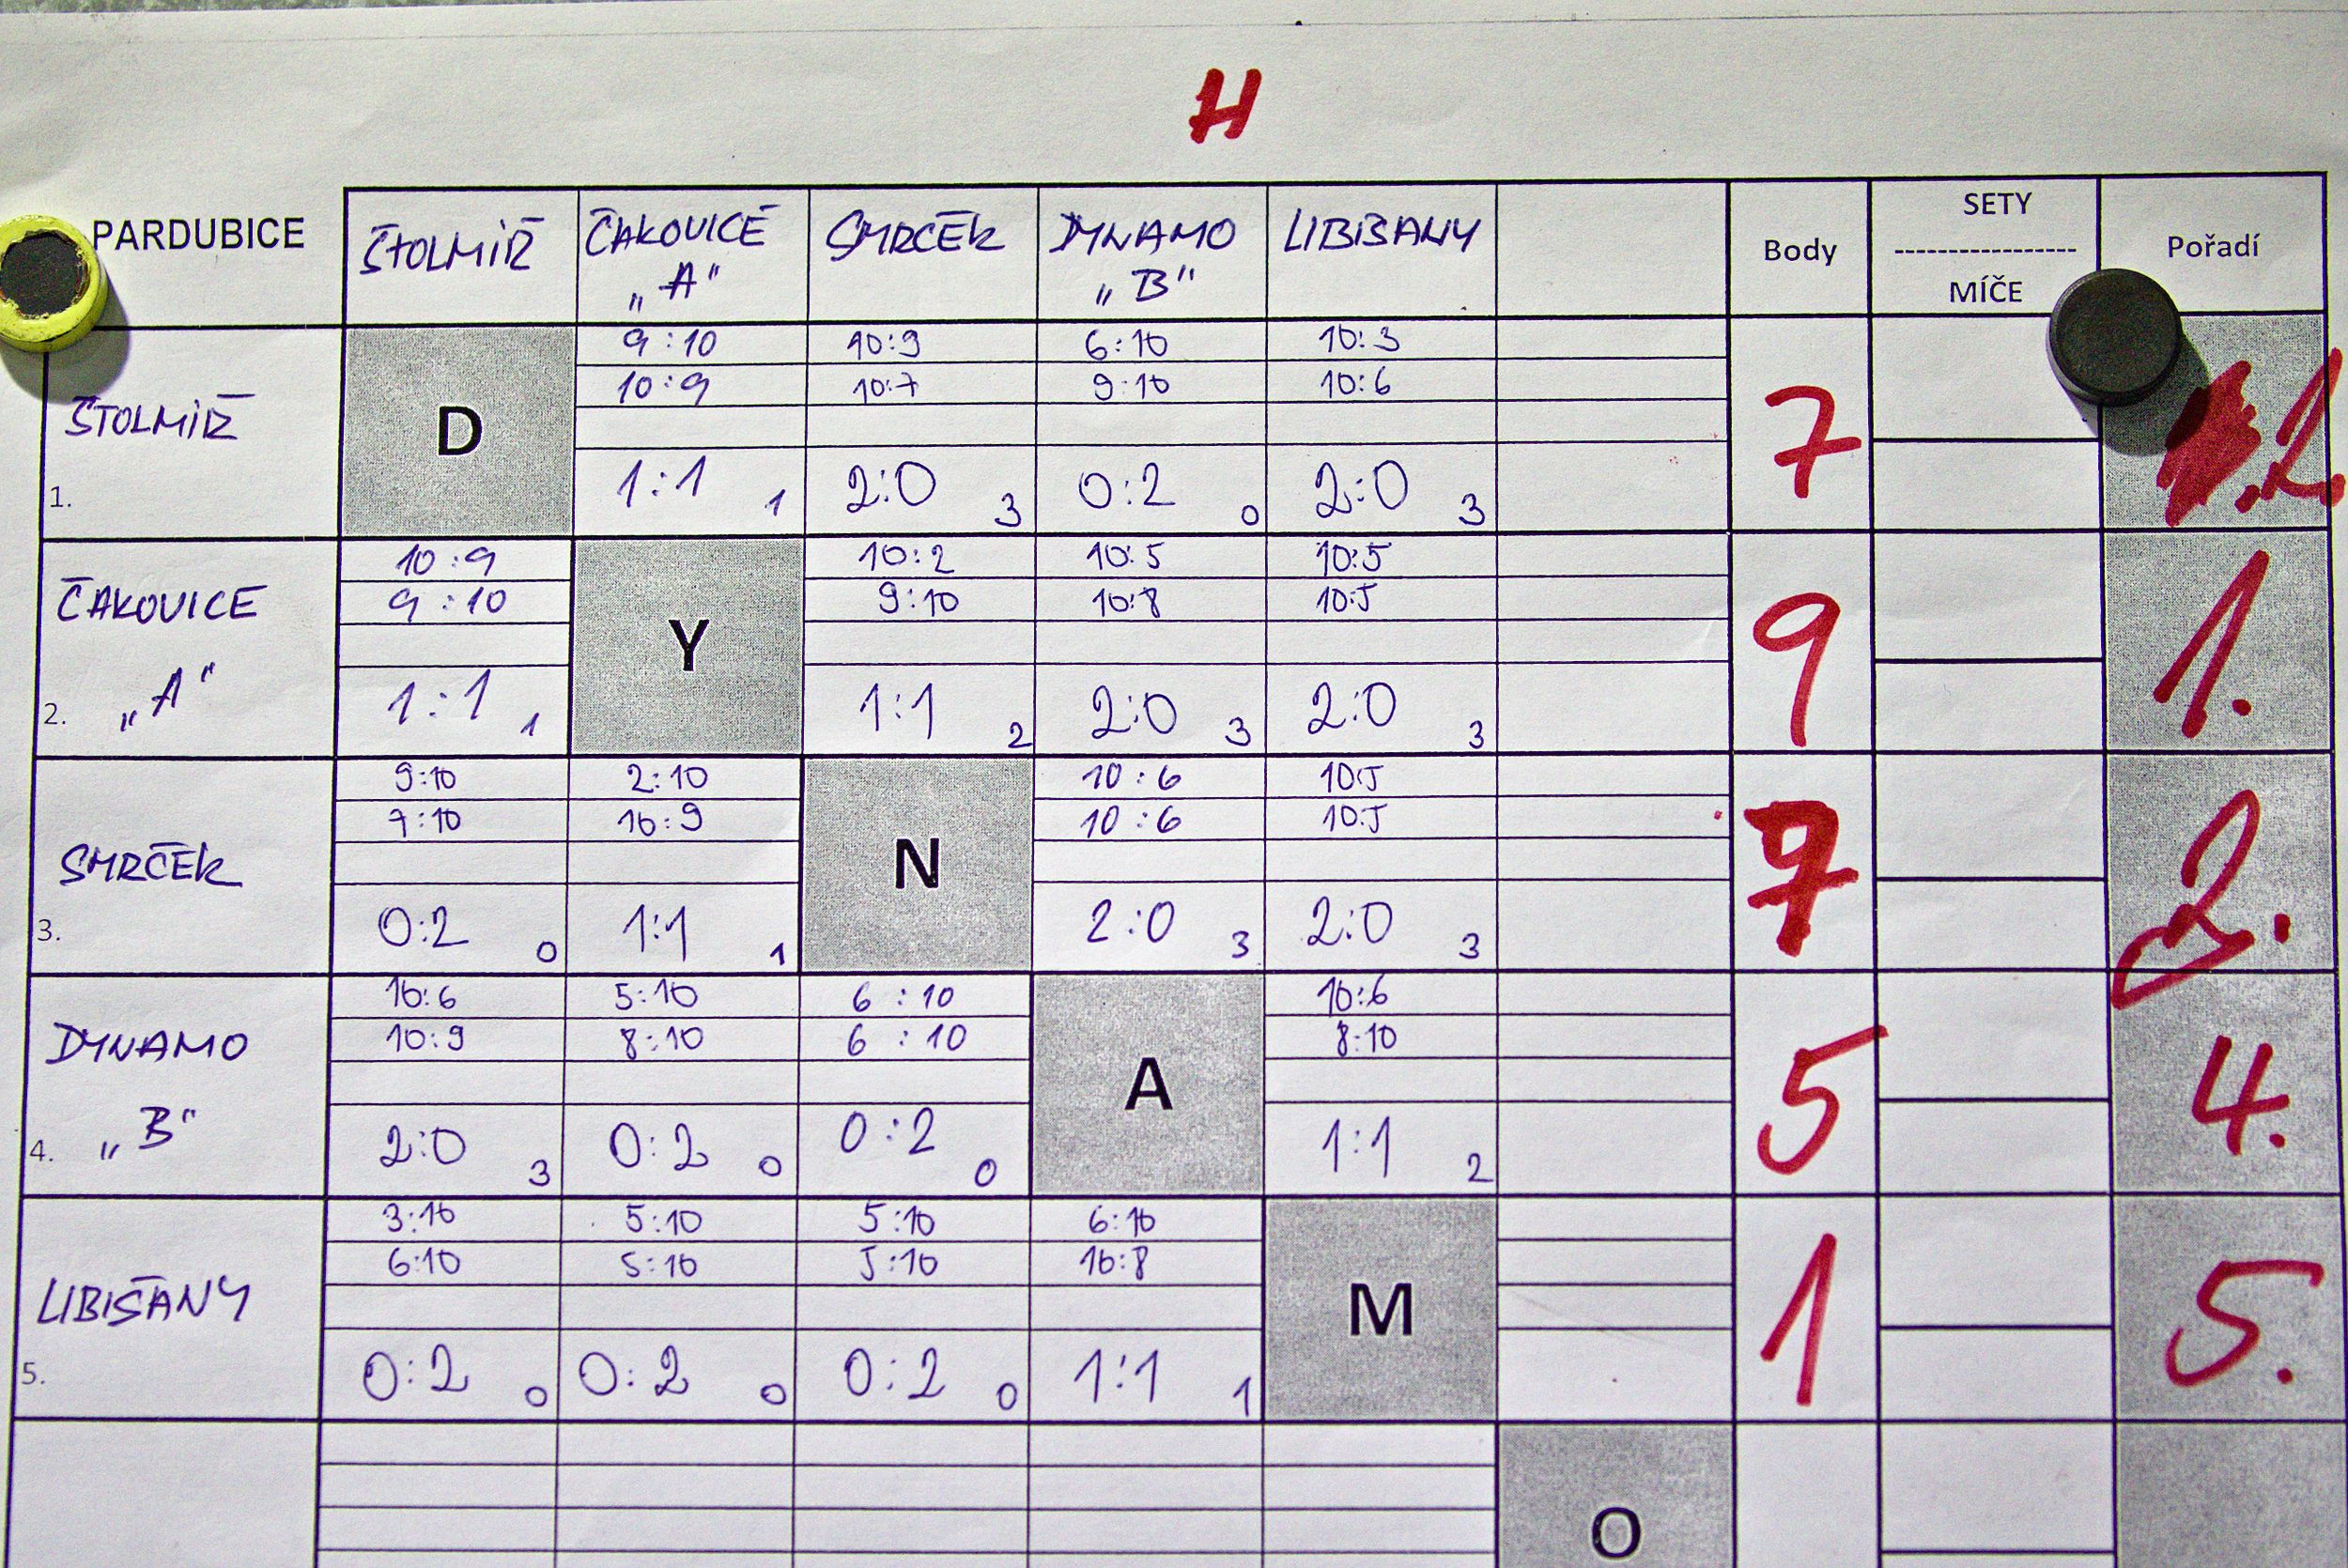 H
PARDUBICE ŠTOLMÍŘ ČAKOVICE „A" SMRČEK DYNAMO „B" LIBIŠANY Body SETY MÍČE Pořadí
ŠTOLMÍŘ
1.
D
9:10 10:9 6:10 10:3
10:9 10:7 9:10 10:6
1:1 1 2:0 3 0:2 0 2:0 3
7 2.
ČAKOVICE
„A"
2.
10:9 Y 10:2 10:5 10:5
9:10 9:10 10:8 10:5
1:1 1 1:1 2 2:0 3 2:0 3
9 1.
SMRČEK
3.
9:10 2:10 N 10:6 10:5
7:10 10:9 10:6 10:5
0:2 0 1:1 1 2:0 3 2:0 3
7 2.
DYNAMO
„B"
4.
10:6 5:10 6:10 A 10:6
10:9 8:10 6:10 8:10
2:0 3 0:2 0 0:2 0 1:1 2
5 4.
LIBIŠANY
5.
3:10 5:10 5:10 6:10 M
6:10 5:10 5:10 10:8
0:2 0 0:2 0 0:2 0 1:1 1
1 5.
O